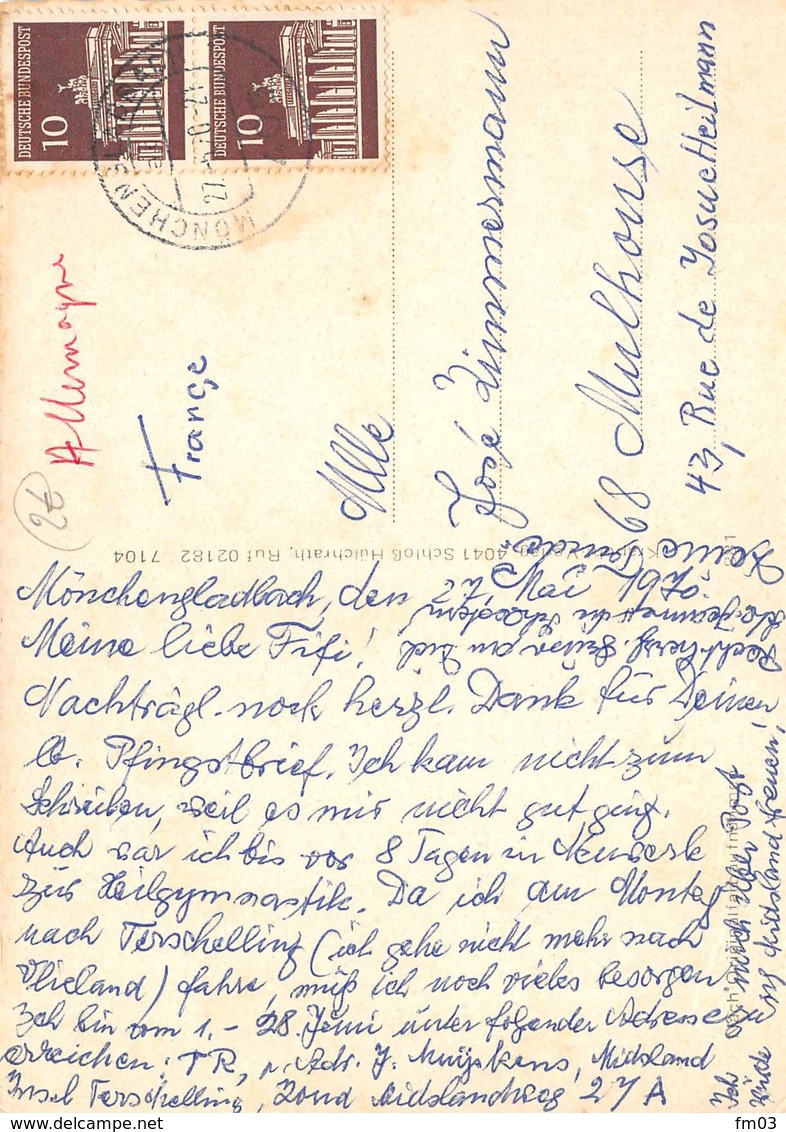 DEUTSCHE BUNDESPOST
10
DEUTSCHE BUNDESPOST
10
MÖNCHENGLADBACH
27.5.70-21
Allemagne
France
Mlle
José Zimmermann
68 Mulhouse
43, Rue de Josué Heilmann
2t
Verlag, 4041 Schloß Hülchrath, Ruf 02182 7104
Mönchengladbach, den 27. Mai 1970.
Meine liebe Fifi!
Nachträgl. noch herzl. Dank für Deinen
lb. Pfingstbrief. Ich kam nicht zum
Schreiben, weil es mir nicht gut ging.
Auch war ich bis vor 8 Tagen in Neuwerk
zur Heilgymnastik. Da ich am Montag
nach Terschelling (ich gehe nicht mehr nach
Vlieland) fahre, muß ich noch vieles besorgen
Ich bin vom 1. - 28. Juni unter folgender Adresse zu
erreichen: TR, p. Adr. J. Muijskens, Midsland
Insel Terschelling, Zond Midslandweg 27 A
Ich würde mich über Post
aus Midsland freuen!
Recht herzl. Grüße an Dich
Deine Tante
fm03